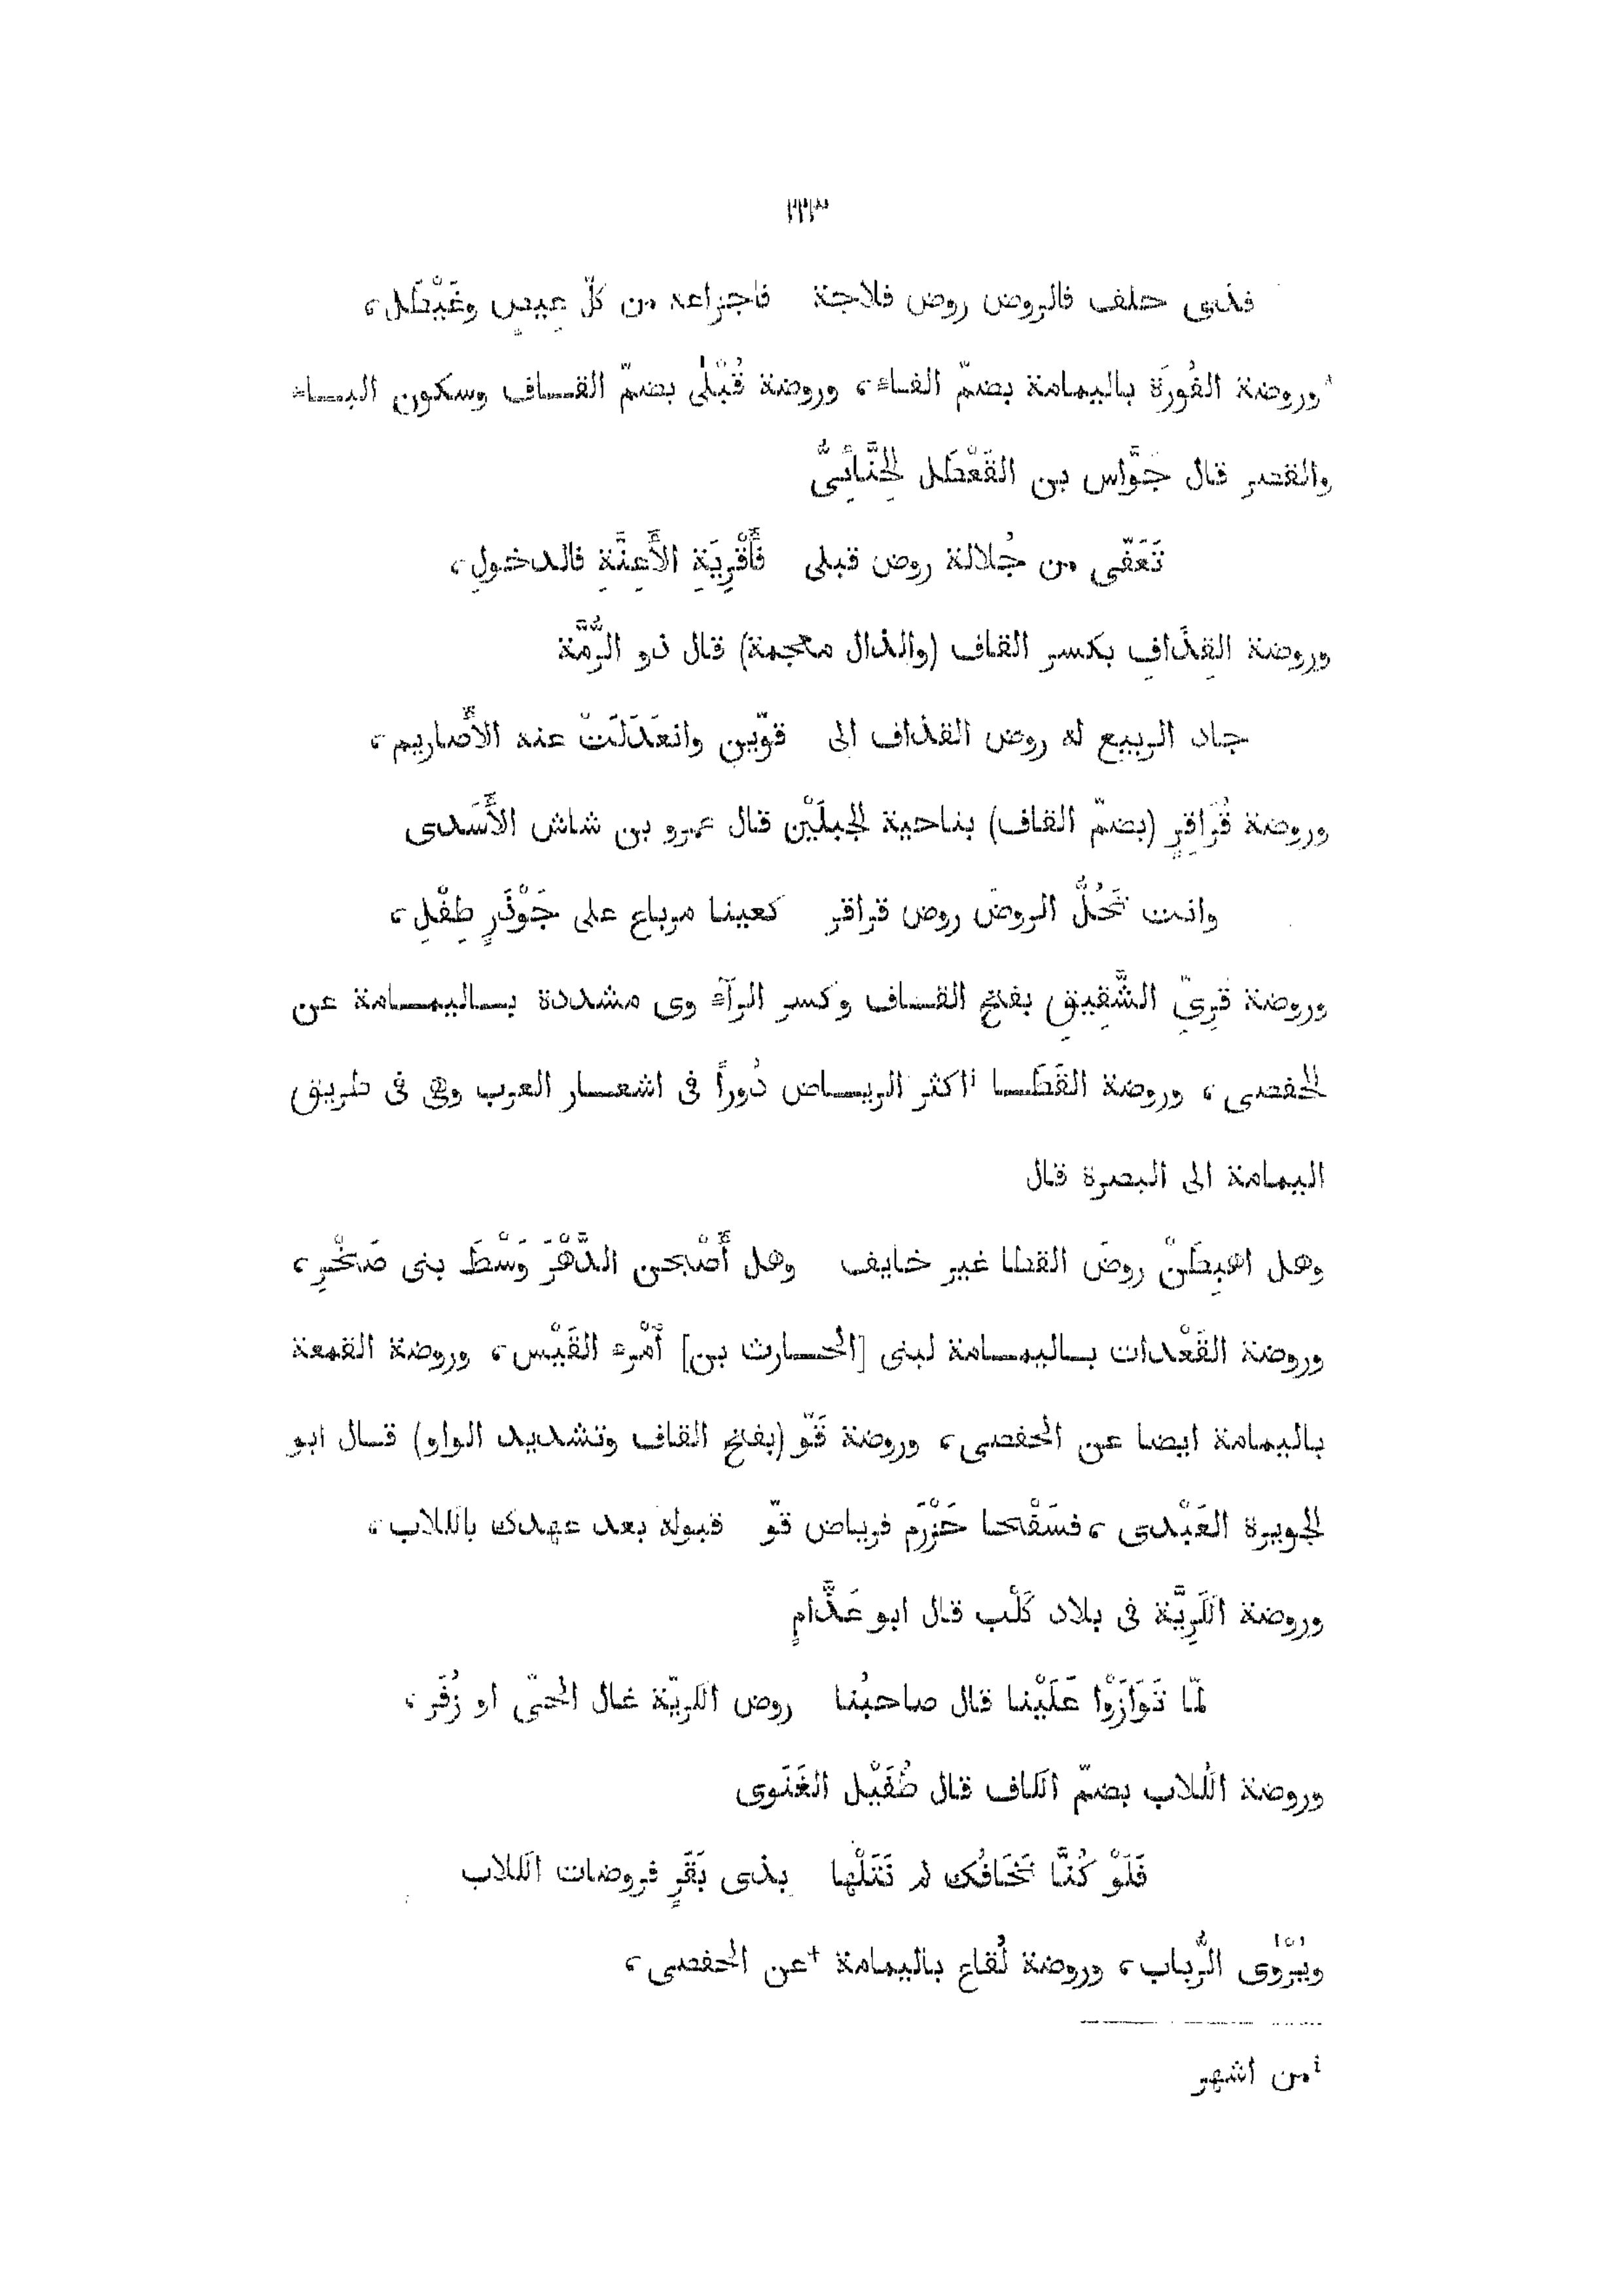 ٢٢٣
فذى حلف فالروض روض فلاجة فاجزاعه من كلّ عِيصٍ وغَيْطَل،
وروضة الفُورَة باليمامة بضمّ الفاء، وروضة قُبْلَى بضمّ القاف وسكون الباء
والقصر قال جَوَّاس بن القَعْطَل الحِنَّائىّ
تَعَفَّى من جُلالة روض قبلى فأَقْرِيَةِ الأَعِنَّةِ فالدخولِ،
وروضة القِذَافِ بكسر القاف (والذال معجمة) قال ذو الرُّمَّة
جاد الربيع له روض القذاف الى قوّين وانعَدَلَتْ عنه الأَصاريم،
وروضة قُرَاقِرٍ (بضمّ القاف) بناحية الجبلَيْن قال عمرو بن شاش الأَسَدى
وانت تَحُلُّ الروضَ روض قراقر كعينا مرباع على جَوْذَرٍ طِفْلِ،
وروضة قَرِىّ الشَّقِيقِ بفتح القاف وكسر الرآء وى مشددة باليمامة عن
الحفصى، وروضة القَطَا أكثر الرياض دُوراً فى اشعار العرب وهى فى طريق
اليمامة الى البصرة قال
وهل اهبِطَنْ روضَ القطا غير خايف وهل أَصْبحن الدَّهْرَ وَسْطَ بنى صَخْرِ،
وروضة القَعْدات باليمامة لبنى [الحارث بن] أمْرء القَيْس، وروضة القمعة
باليمامة ايضا عن الحفصى، وروضة قَوّ (بفتح القاف وتشديد الواو) قال ابو
الجويرة العَبْدى، فسَفْحا حَزْرَم فرياض قوّ قبوله بعد عهدك بالكلاب،
وروضة الكَرِيَّة فى بلاد كَلْب قال ابو عَذَّامٍ
لمّا تَوَازَوْا عَلَيْنا قال صاحبُنا روض الكريّة غال الحىّ او زُفَر،
وروضة الكُلاب بضمّ الكاف قال طُفَيْل الغَنَوى
فَلَوْ كُنَّا نَخَافُك لم تَنَلْها بذى بَقَرٍ فروضات الكلاب
ويُرْوَى الرُّباب، وروضة لُقاع باليمامة +عن الحفصى،
i من اشهر